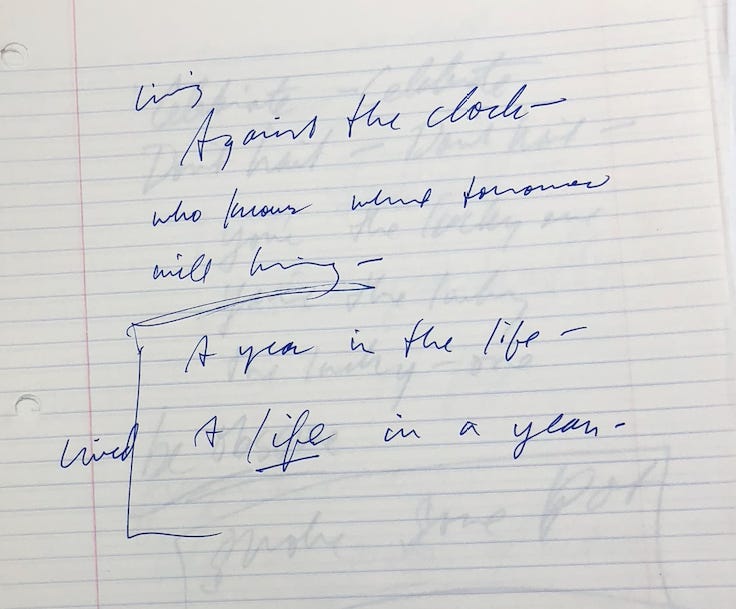 living
Against the clock -
who knows what tomorrow
will bring -
A year in the life -
lived A life in a year -